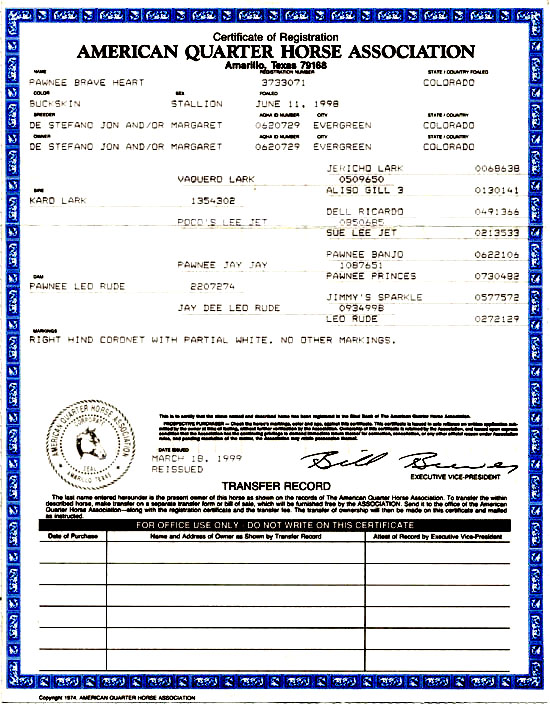 Certificate of Registration
AMERICAN QUARTER HORSE ASSOCIATION
Amarillo, Texas 79168
NAME REGISTRATION NUMBER STATE / COUNTRY FOALED
PAWNEE BRAVE HEART 3733071 COLORADO
COLOR SEX FOALED
BUCKSKIN STALLION JUNE 11, 1998
BREEDER AQHA ID NUMBER CITY STATE / COUNTRY
DE STEFANO JON AND/OR MARGARET 0620729 EVERGREEN COLORADO
OWNER AQHA ID NUMBER CITY STATE / COUNTRY
DE STEFANO JON AND/OR MARGARET 0620729 EVERGREEN COLORADO
JERICHO LARK 0068638
VAQUERO LARK 0509650
ALISO GILL 3 0130141
SIRE
KARO LARK 1354302
DELL RICARDO 0491366
POCO'S LEE JET 0850685
SUE LEE JET 0213533
PAWNEE BANJO 0622106
PAWNEE JAY JAY 1087651
PAWNEE PRINCES 0730482
DAM
PAWNEE LEO RUDE 2207274
JIMMY'S SPARKLE 0577572
JAY DEE LEO RUDE 0934998
LEO RUDE 0272129
MARKINGS
RIGHT HIND CORONET WITH PARTIAL WHITE. NO OTHER MARKINGS.
AMERICAN QUARTER HORSE ASSOCIATION
SEAL
AMARILLO TEXAS
This is to certify that the above named and described horse has been registered in the Stud Book of The American Quarter Horse Association.
DATE ISSUED
MARCH 18, 1999
REISSUED
Bill Brewer
EXECUTIVE VICE-PRESIDENT
TRANSFER RECORD
The last name entered hereunder is the present owner of this horse as shown on the records of The American Quarter Horse Association. To transfer the within
described horse, make transfer on a separate transfer form or bill of sale, which will be furnished free by the ASSOCIATION. Send it to the office of the American
Quarter Horse Association—along with the registration certificate and the transfer fee. The transfer of ownership will then be made on this certificate and mailed
as instructed.
FOR OFFICE USE ONLY - DO NOT WRITE ON THIS CERTIFICATE
Date of Purchase Name and Address of Owner as Shown by Transfer Record Attest of Record by Executive Vice-President
Copyright 1974 AMERICAN QUARTER HORSE ASSOCIATION